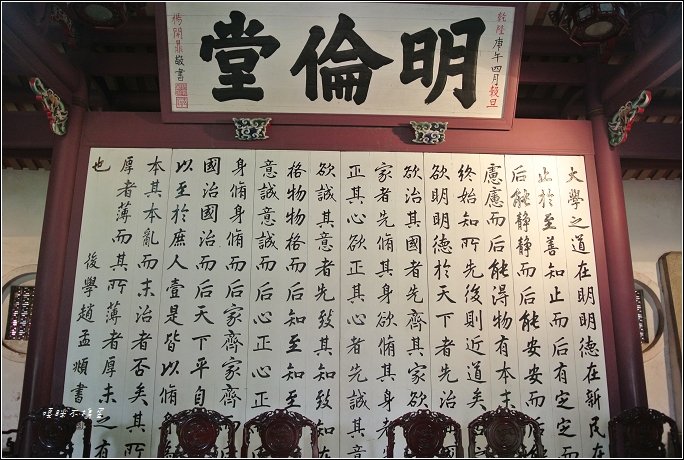 乾隆庚午四月穀旦
明倫堂
楊開鼎敬書
大學之道在明明德在新民在
止於至善知止而后有定定而
后能静静而后能安安而后
慮慮而后能得物有本末
終始知所先後則近道矣
欲明明德於天下者先治
欲治其國者先齊其家欲
家者先脩其身欲脩其身
正其心欲正其心者先誠其
欲誠其意者先致其知致知
格物物格而后知至知至
意誠意誠而后心正心正
身脩身脩而后家齊家齊
國治國治而后天下平自
以至於庶人壹是皆以脩
本其本亂而末治者否矣其
厚者薄而其所薄者厚未之有
也
後學趙孟頫書